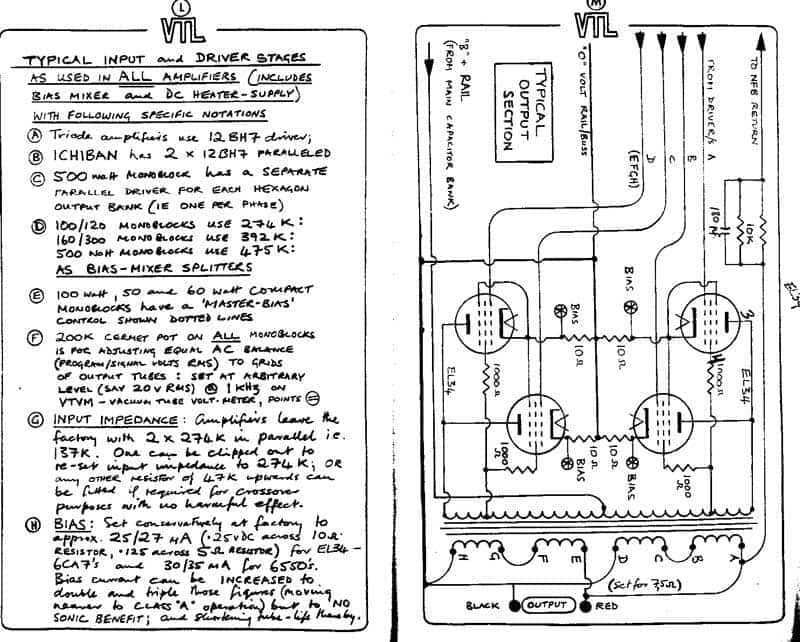 L
VTL
TYPICAL INPUT and DRIVER STAGES
AS USED IN ALL AMPLIFIERS (INCLUDES
BIAS MIXER and DC HEATER-SUPPLY)
WITH FOLLOWING SPECIFIC NOTATIONS
A Triode amplifiers use 12BH7 driver;
B ICHIBAN has 2 x 12BH7 PARALLELED
C 500 watt MONOBLOCK has a SEPARATE
PARALLEL DRIVER FOR EACH HEXAGON
OUTPUT BANK (IE ONE PER PHASE)
D 100/120 MONOBLOCKS USE 274K:
160/300 MONOBLOCKS USE 392K:
500 Watt MONOBLOCKS USE 475K:
AS BIAS-MIXER SPLITTERS
E 100 watt, 50 and 60 watt COMPACT
MONOBLOCKS have a 'MASTER-BIAS'
CONTROL SHOWN DOTTED LINES
F 200K CERMET POT ON ALL MONOBLOCKS
IS FOR ADJUSTING EQUAL AC BALANCE
(PROGRAM/SIGNAL VOLTS RMS) TO GRIDS
OF OUTPUT TUBES: SET AT ARBITRARY
LEVEL (SAY 20V RMS) @ 1KHz ON
VTVM - VACUUM TUBE VOLT-METER, POINTS
G INPUT IMPEDANCE: Amplifiers leave the
factory with 2 x 274K in parallel i.e.
137K. One can be clipped out to
re-set input impedance to 274K; OR
any OTHER resistor of 47K upwards can
be fitted if required for crossover
purposes with no harmful effect.
H BIAS: Set conservatively at factory to
approx. 25/27 MA (.25VDC across 10Ω
RESISTOR, .125 across 5Ω RESISTOR) for EL34-
6CA7's and 30/35 MA for 6550's.
Bias current can be INCREASED to
double and triple those figures (moving
nearer to CLASS "A" operation) but to NO
SONIC BENEFIT; and shortening tube-life thereby.
M
VTL
"B"+ RAIL
(FROM MAIN CAPACITOR BANK)
TYPICAL
OUTPUT
SECTION
"O" VOLT RAIL/BUSS
(EFGH)
D
C
B
FROM DRIVER/S A
TO NFB RETURN
180
10K
EL34
BIAS
BIAS
3
10Ω
10Ω
EL34
1000Ω
1000Ω
EL34
10Ω
10Ω
BIAS
BIAS
1000Ω
1000Ω
H
G
F
E
D
C
B
A
(Set for 7,5Ω)
BLACK
OUTPUT
RED